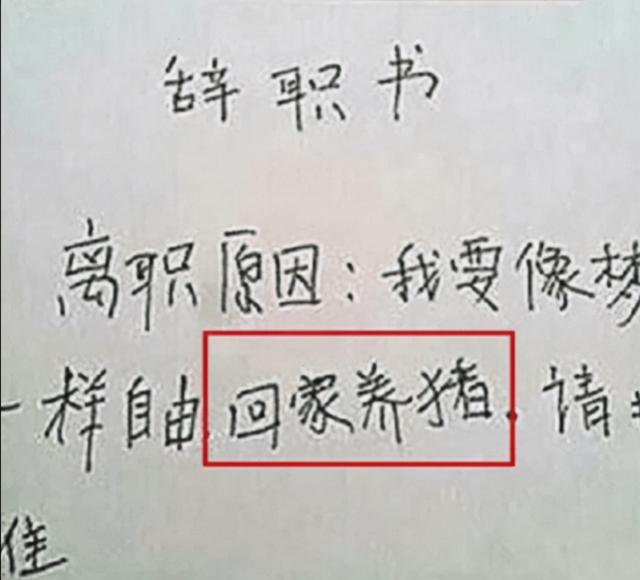 辞职书
离职原因：我要像梦
一样自由,回家养猪.请
准